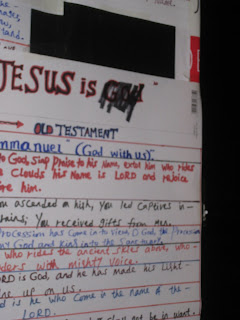 JESUS is God
OLD TESTAMENT
mmanuel" (God with us).
to God, Sing Praise to his Name, extol him who rides
e Clouds his Name is LORD and rejoice
ore him.
ou ascended on high, You led Captives in -
You received gifts from Men,
Procession has Come into View, O God the Procession
my God and King into the Sanctuary
who rides the ancient skies above, who -
with mighty Voice.
ORD is God, and he has made his Light -
ine up on us.
ed is he who Come in the name of the -
LORD.
not be in want.